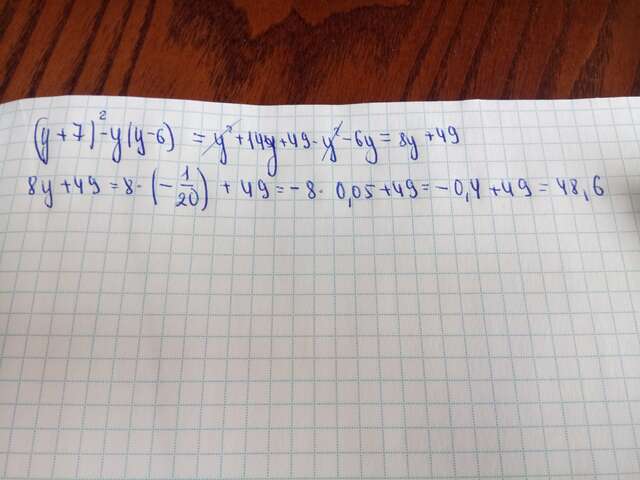 (y+7)²-y(y-6) = y²+14y+49-y²-6y = 8y+49
8y+49 = 8·(-1/20)+49 = -8·0,05+49 = -0,4+49 = 48,6